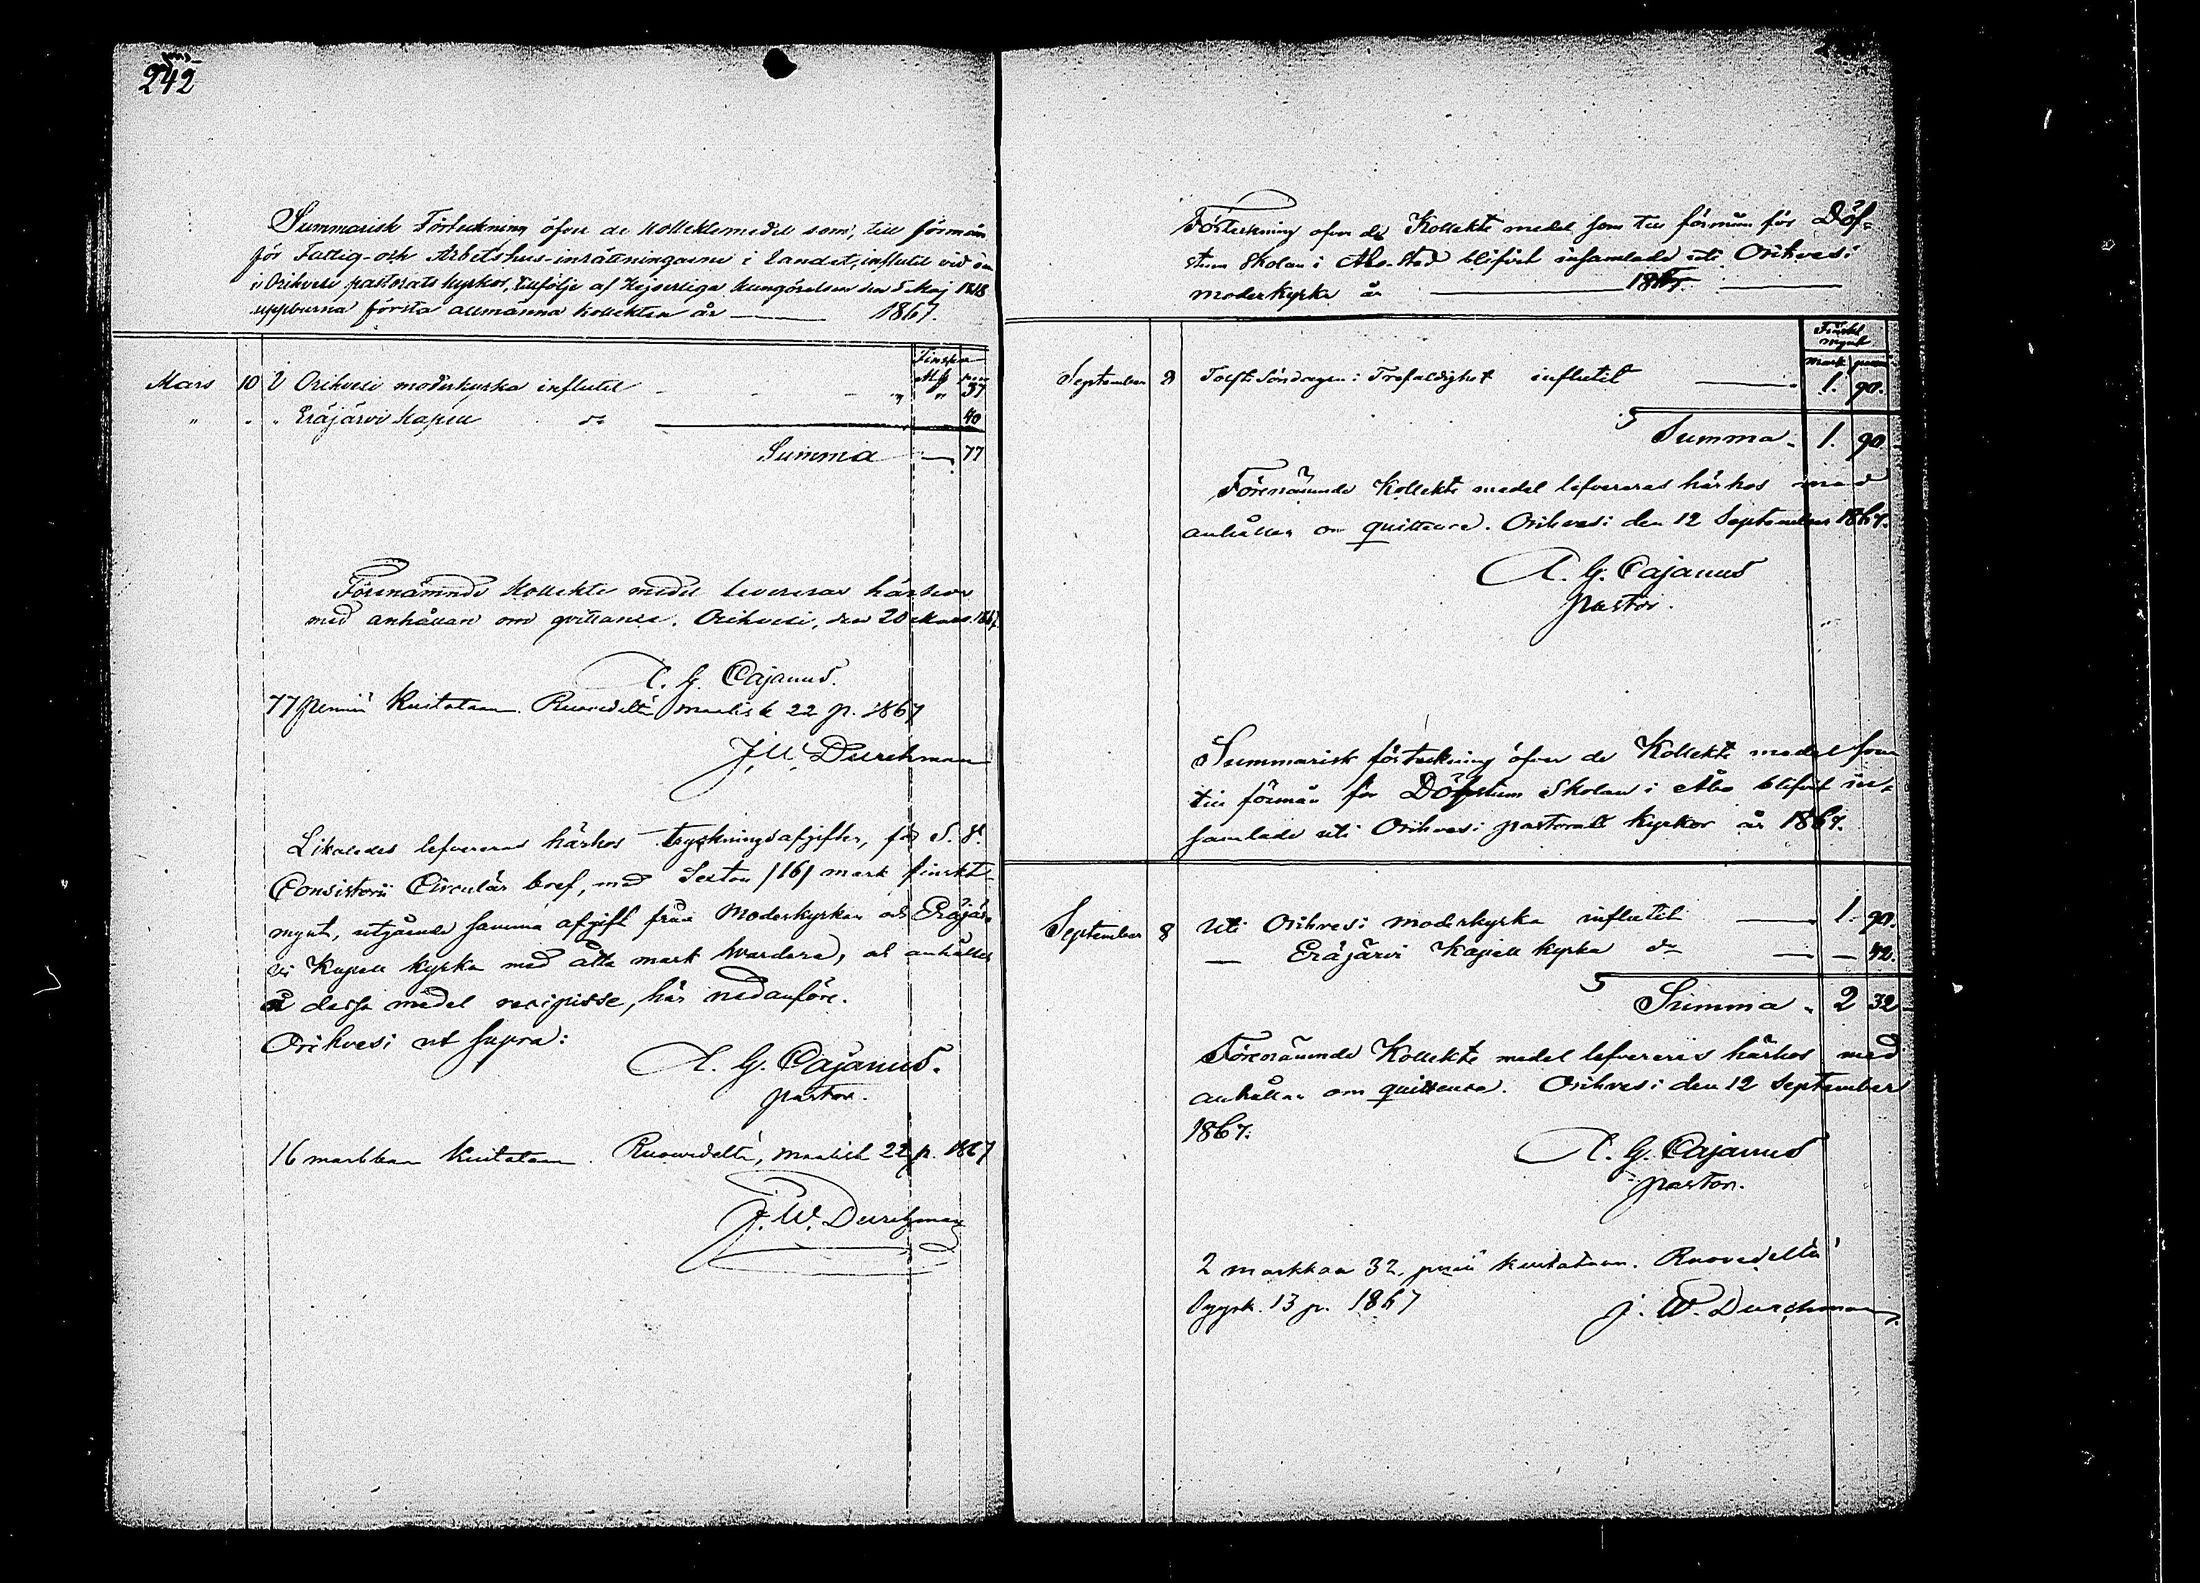 242
Summarisk Förteckning öfver de Kollektemedel som, till förmån
för Fattig- och Arbetshus-inrättningarne i Landet, influtit vid den
i Orihvesi pastorats kyrkor, tillfölje af Kejserliga kungörelsen den 5 Maj 1818
uppburna första allmänna Kollekten år 1867.
Finskt
Mk penni
Mars 10 I Orihvesi moderkyrka influtit " 37
" " " Eräjärvi Kapell do 40
Summa — 77
Förenämnde Kollekte medel levereras härhos
med anhållan om qvittance. Orihvesi, den 20 Mars 1867.
A. G. Cajanus.
77 penniä kuitataan. Ruovedeltä maalisk 22 p. 1867
J. W. Durchman
Likaledes lefvereras härhos tryckningsafgifter, för S. 8.
Consistorii Circulär bref, med Sexton /16/ mark finskt
mynt, utgående samma afgift från Moderkyrkan och Eräjär-
vi Kapell kyrka med åtta mark hvardera, och anhålles
å dessa medel recipisse, här nedanföre.
Orihvesi ut supra:
A. G. Cajanus.
pastor.
16 markkaa kuitataan. Ruovedeltä, maalisk 22 p. 1867
J. W. Durchman
Förteckning öfver de Kollekte medel som till förmån för Döf-
stum Skolan i Åbo stad blifvit insamlade uti Orihvesi
moderkyrka år 1867.
Finskt
mynt
mark penni
September 8 Tolfte Söndagen i Trefaldighet influtit 1. 90.
Summa 1. 90
Förenämnde Kollekte medel lefvereras härhos med
anhållan om quittance. Orihvesi den 12 September 1867.
A. G. Cajanus
pastor.
Summarisk förteckning öfver de Kollekte medel som
till förmån för Döfstum Skolan i Åbo blifvit in-
samlade uti Orihvesi pastorats kyrkor år 1867.
September 8 Uti Orihvesi moderkyrka influtit 1. 90.
— Eräjärvi Kapell kyrka do — 42.
Summa 2 32
Förenämnde Kollekte medel lefvereras härhos med
anhållan om quittance. Orihvesi den 12 September
1867.
A. G. Cajanus
pastor.
2 markkaa 32 penniä kuitataan. Ruovedeltä
Syysk. 13 p. 1867 J. W. Durchman